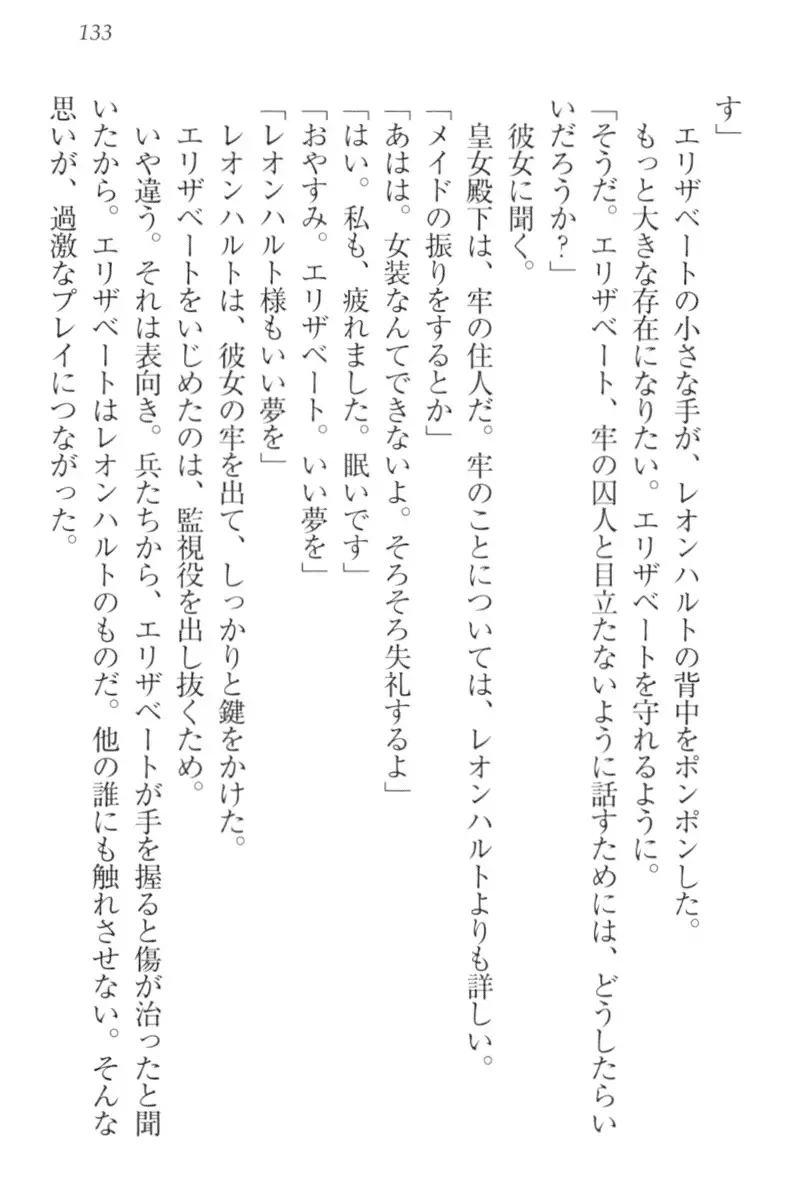 133
す」
　エリザベートの小さな手が、レオンハルトの背中をポンポンした。
　もっと大きな存在になりたい。エリザベートを守れるように。
「そうだ。エリザベート、牢の囚人と目立たないように話すためには、どうしたらい
いだろうか？」
　彼女に聞く。
　皇女殿下は、牢の住人だ。牢のことについては、レオンハルトよりも詳しい。
「メイドの振りをするとか」
「あはは。女装なんてできないよ。そろそろ失礼するよ」
「はい。私も、疲れました。眠いです」
「おやすみ。エリザベート。いい夢を」
「レオンハルト様もいい夢を」
　レオンハルトは、彼女の牢を出て、しっかりと鍵をかけた。
　エリザベートをいじめたのは、監視役を出し抜くため。
　いや違う。それは表向き。兵たちから、エリザベートが手を握ると傷が治ったと聞
いたから。エリザベートはレオンハルトのものだ。他の誰にも触れさせない。そんな
思いが、過激なプレイにつながった。